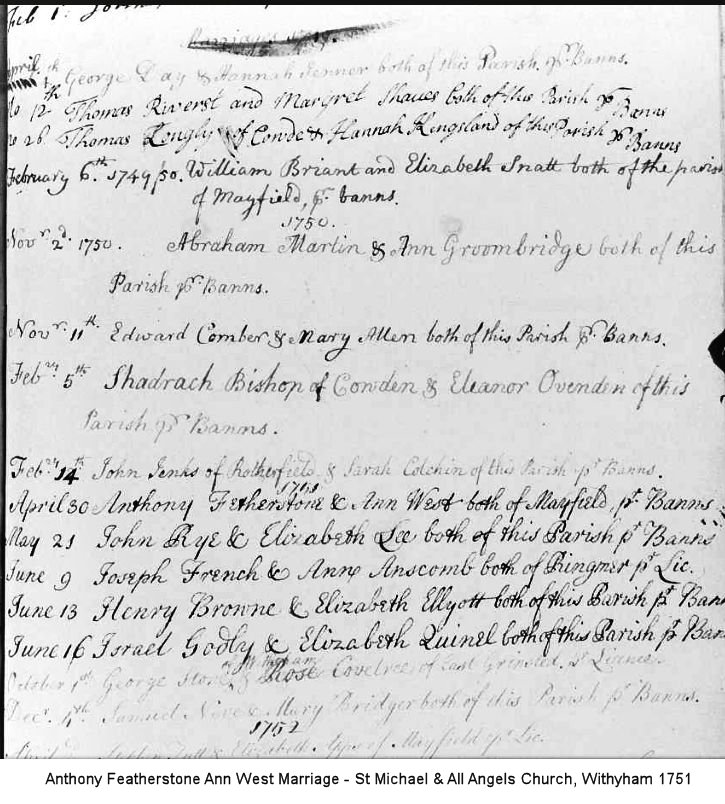 Feb 1
Marriages
April George Day & Hannah Jenner both of this Parish. pr Banns.
12th Thomas Riverst and Margret Shaues both of this Parish pr Banns
26. Thomas Longly of Cowden & Hannah Kingsland of this Parish pr Banns
February 6th 1749/50. William Briant and Elizabeth Snatt both of the parish
of Mayfield, pr banns.
1750.
Novr 2d 1750. Abraham Martin & Ann Groombridge both of this
Parish pr Banns.
Novr 11th Edward Comber & Mary Allen both of this Parish pr Banns.
Febry 5th Shadrach Bishop of Cowden & Eleanor Ovenden of this
Parish pr Banns.
Febry 14th John Jenks of Rotherfield & Sarah Colchin of this Parish pr Banns.
1751
April 30 Anthony Fetherstone & Ann West both of Mayfield, pr Banns
May 21 John Rye & Elizabeth Lee both of this Parish pr Banns
June 9 Joseph French & Ann Anscomb both of Ringmer pr Lic.
June 13 Henry Browne & Elizabeth Ellyott both of this Parish pr Bann
June 16 Israel Godly & Elizabeth Quinel both of this Parish pr Ban
October 1st George Stone & Rose Covelree of East Grinsted. pr Licence.
Decr. 4th Samuel Nove & Mary Bridger both of this Parish pr Banns.
1752
& Elizabeth of Mayfield pr Lic.
Anthony Featherstone Ann West Marriage - St Michael & All Angels Church, Withyham 1751